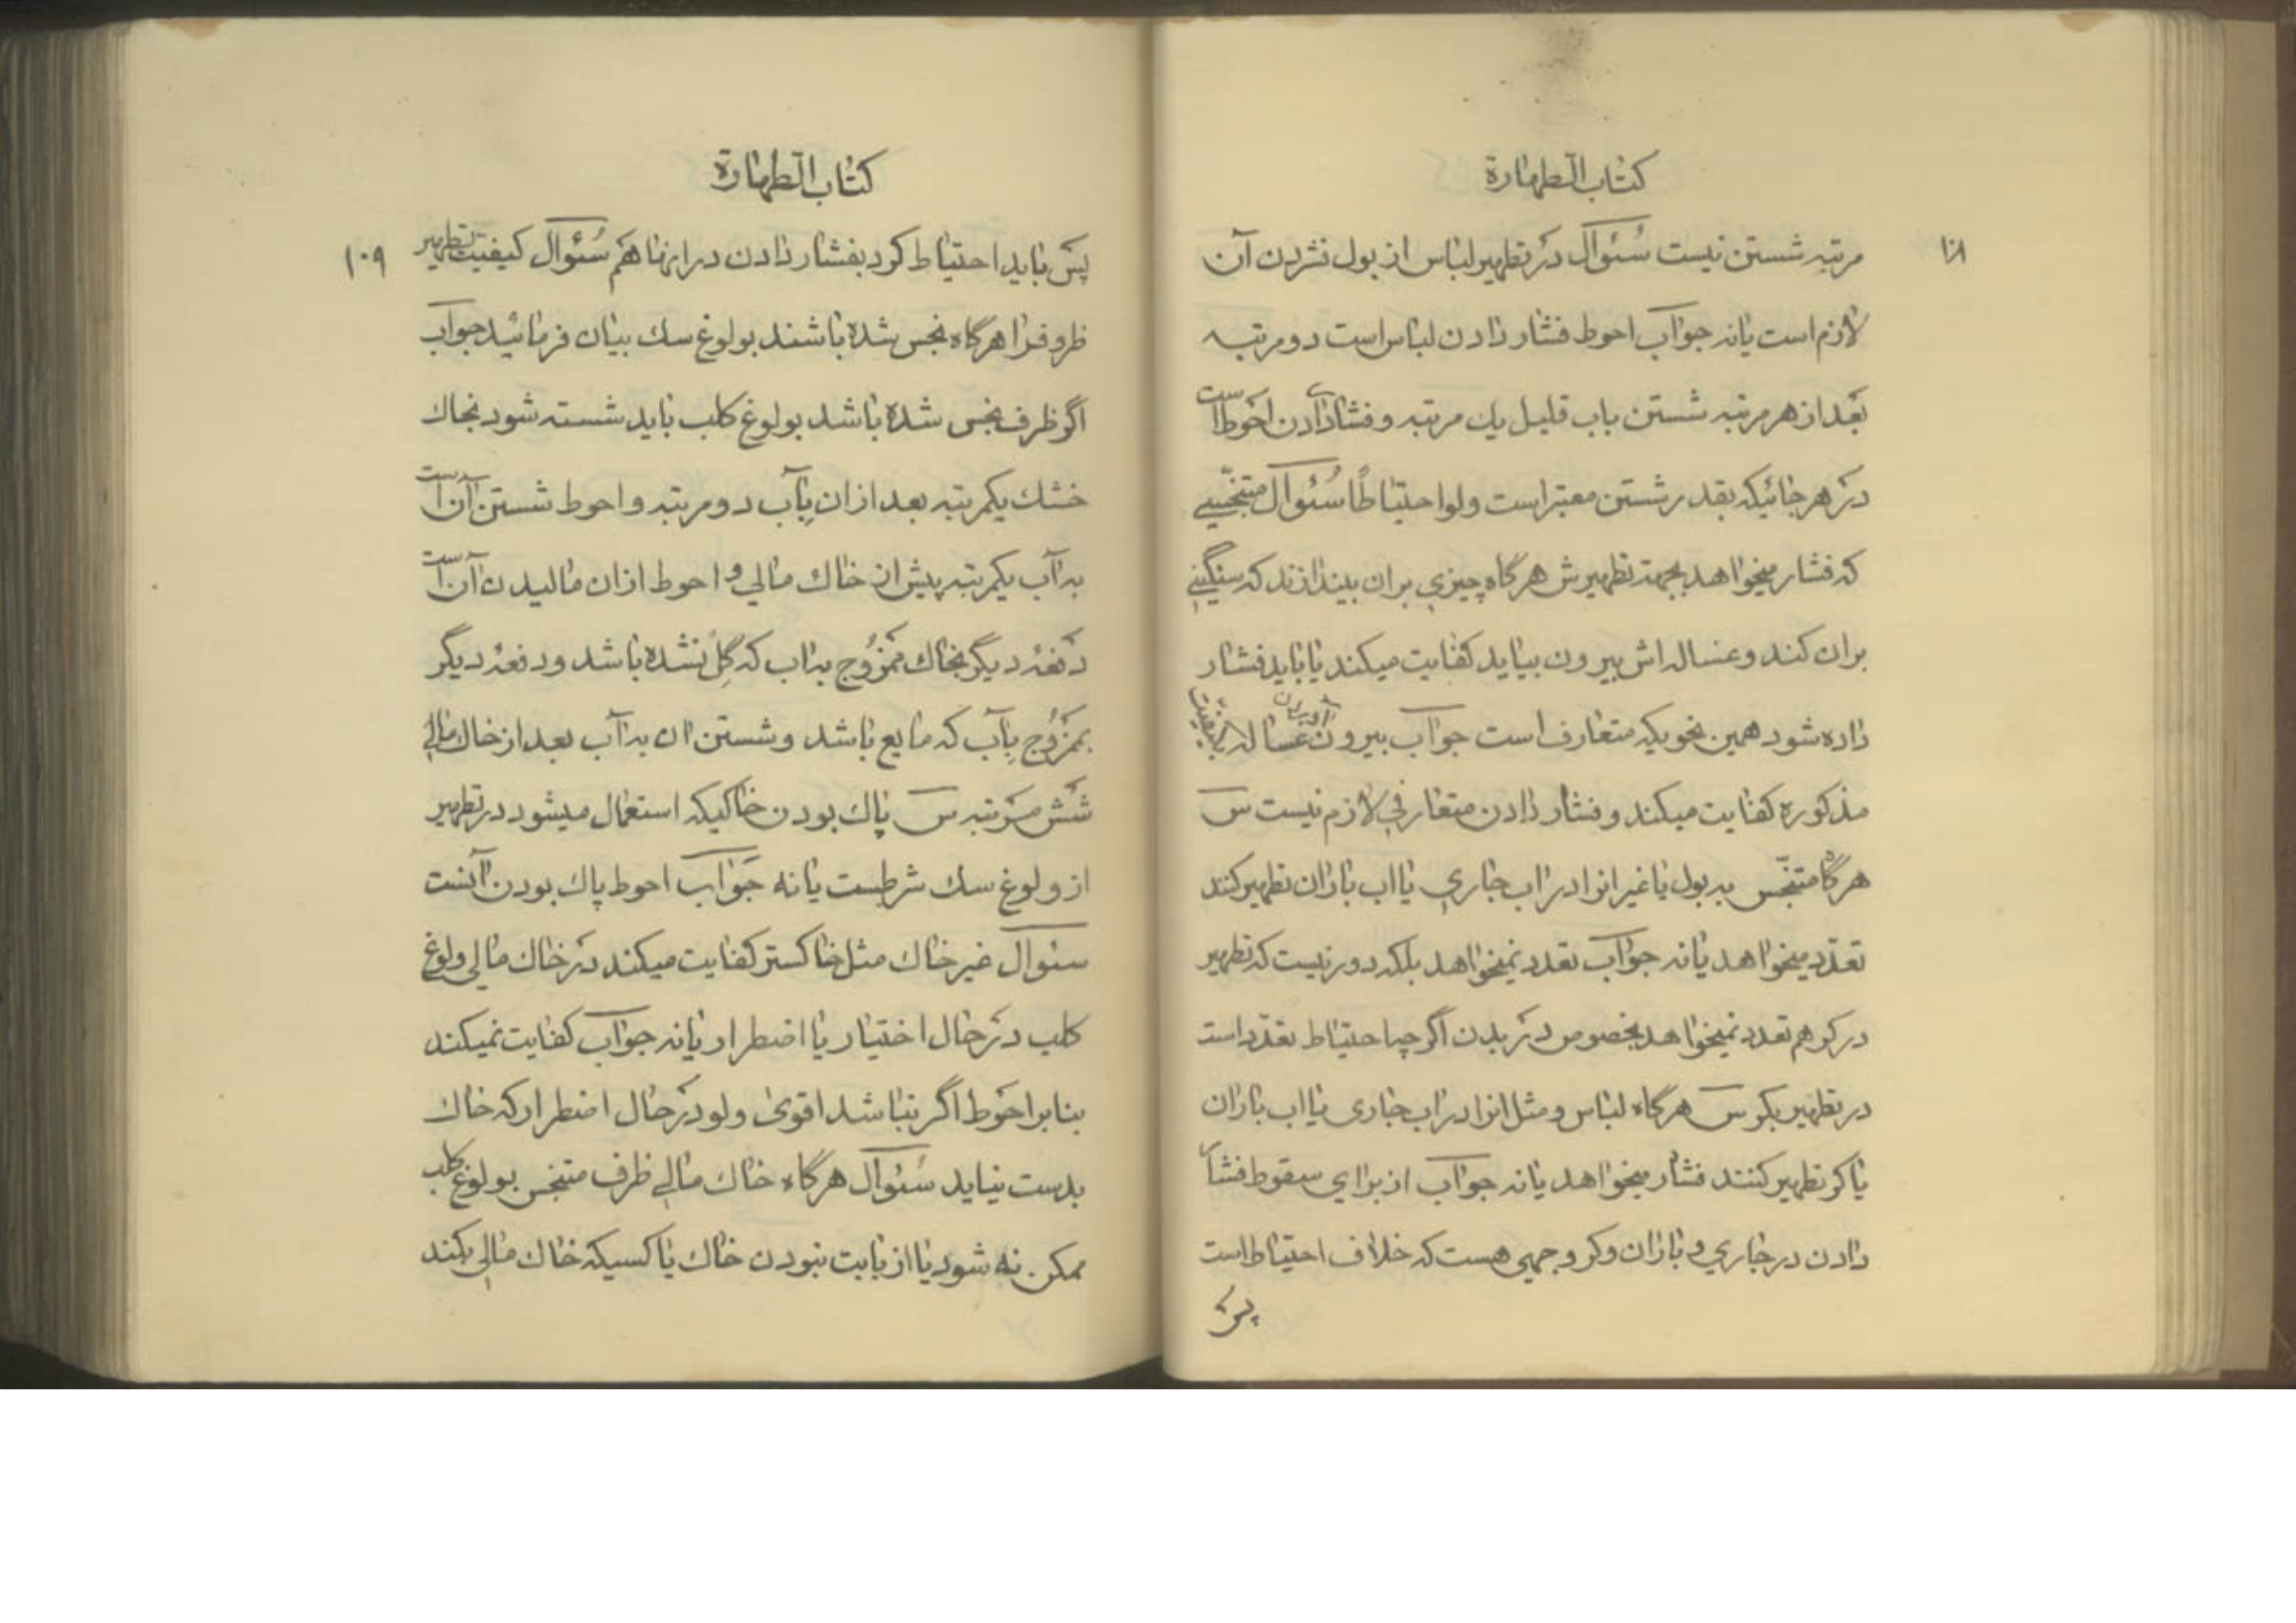 كتاب الطهارة
١٠٨
مرتبه شستن نيست سُئوال در تطهير لباس از بول فشردن آن
لازم است يا نه جواب احوط فشار دادن لباس است دو مرتبه
بعد از هر مرتبه شستن باب قليل يك مرتبه و فشار دادن احوط است
در هر جائيكه بقدر شستن معتبر است ولو احتياطًا سُئوال متنجّسي
كه فشار ميخواهد بجهة تطهيرش هر گاه چيزي بران بيندازند كه سنگيني
بران كند و غساله اش بيرون بيايد كفايت ميكند يا بايد فشار
داده شود همين نحويكه متعارف است جواب بيرون آوردن غساله
مذكوره كفايت ميكند و فشار دادن متعارفي لازم نيست س
هرگاه متنجّس به بول يا غير انرا در اب جاري يا اب باران تطهير كند
تعدّد ميخواهد يا نه جواب تعدد نميخواهد بلكه دور نيست كه تطهير
در كر هم تعدد نميخواهد بخصوص در بدن اگر چه احتياط تعدّد است
در تطهير بكر س هرگاه لباس و مثل انرا در اب جارى يا اب باران
يا كر تطهير كنند فشار ميخواهد يا نه جواب از براي سقوط فشار
دادن در جاري و باران و كر وجهي هست كه خلاف احتياط است
پس
كتاب الطهارة
١٠٩
پس بايد احتياط كرد بفشار دادن در اينها هم سُئوال كيفيت تطهير
ظروف را هرگاه نجس شده باشند بولوغ سك بيان فرمائيد جواب
اگر ظرف نجس شده باشد بولوغ كلب بايد شسته شود بخاك
خشك يكمرتبه بعد از ان بِآب دو مرتبه و احوط شستن آن است
به آب يكمرتبه پيش از خاك مالي و احوط از ان ماليدن آن است
دفعهٔ ديگر بخاك ممزُوج به اب كه گِل نشده باشد و دفعهٔ ديگر
بمزُوج بِآب كه مايع باشد و شستن ان به آب بعد از خاك مالي
شش مرتبه س پاك بودن خاكيكه استعمال ميشود در تطهير
از ولوغ سك شرطست يا نه جواب احوط پاك بودن آنست
سئوال غير خاك مثل خاكستر كفايت ميكند در خاك مالي ولوغ
كلب در حال اختيار يا اضطرار يا نه جواب كفايت نميكند
بنا بر احوط اگر نباشد اقوىٰ ولو در حال اضطرار كه خاك
بدست نيايد سُئوال هرگاه خاك مالي ظرف متنجس بولوغ كلب
ممكن نه شود يا از بابت نبودن خاك يا كسيكه خاك مالي بكند